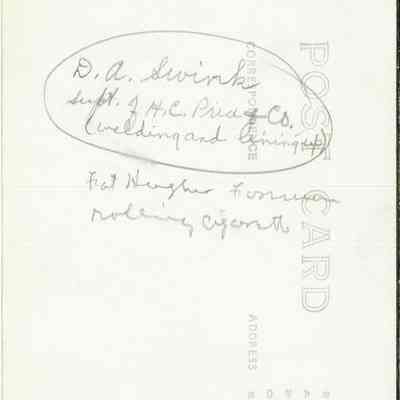 D. A. Swink
Supt. of H.C. Price Co.
(welding and lining up)
Fat Hughes Foreman
rolling cigarette
POST CARD
CORRESPONDENCE
ADDRESS